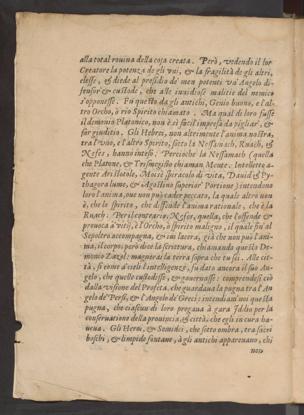 alla total rouina della cosa creata. Però, vedendo il lor
Creatore la potenza de gli vni, & la fragilità de gli altri,
elesse, & diede al presidio de' men potenti vn' Angelo di-
fensor' & custode, che alle insidiose malitie del nemico
s'opponesse. Fu questo da gli antichi, Genio buono, e l'al-
tro Orcho, ò rio Spirito chiamato. Ma qual de loro fusse
il demonio Platonico, non è sì facil' impresa da pigliar', &
far giuditio. Gli Hebrei, non altrimente l'anima nostra,
tra l'vno, e l'altro Spirito, sotto la Nessamach, Ruach, &
Nefes, hanno intesi. Percioche la Nessamach (quella
che Platone, & Trismegisto chiamano Mente: Intelletto a-
gente Aristotele, Mosè spiracolo di vita, David & Py-
thagora lume, & Agostino superior' Portione) intendono
lor l'anima, que non può cader peccato, la quale altro non
è, che lo spirito, che diffende l'anima rationale, che è la
Ruach. Per il contrario, Nefes, quella, che l'offende &
prouoca à vitij, è l'Orcho, ò spirito maligno, il quale fin al
Sepolcro accompagna, & in laceva, già che non può l'ani-
ma, il corpo: però dice la scrittura, chiamando questo De-
monio Zazel: mangierai la terra sopra che tu sei. Alle cit-
tà, sì come à' cieli l'intelligenze, fu dato ancora il suo An-
gelo, che quelle custodisse, & gouernasse: comprendesi ciò
dalla visione del Profeta, che guardaua la pugna tra l'An
gelo de' Persi, & l'Angelo de' Greci: intendiam' noi questa
pugna, che ciascun di loro pregaua à gara Iddio per la
conseruatione della prouincia, & città, che egli in cura ha-
ueua. Gli Heroi, & Semidei, che sotto ombra, tra sacri
boschi, & limpide fontane, à gli antichi apparueano, chi
non